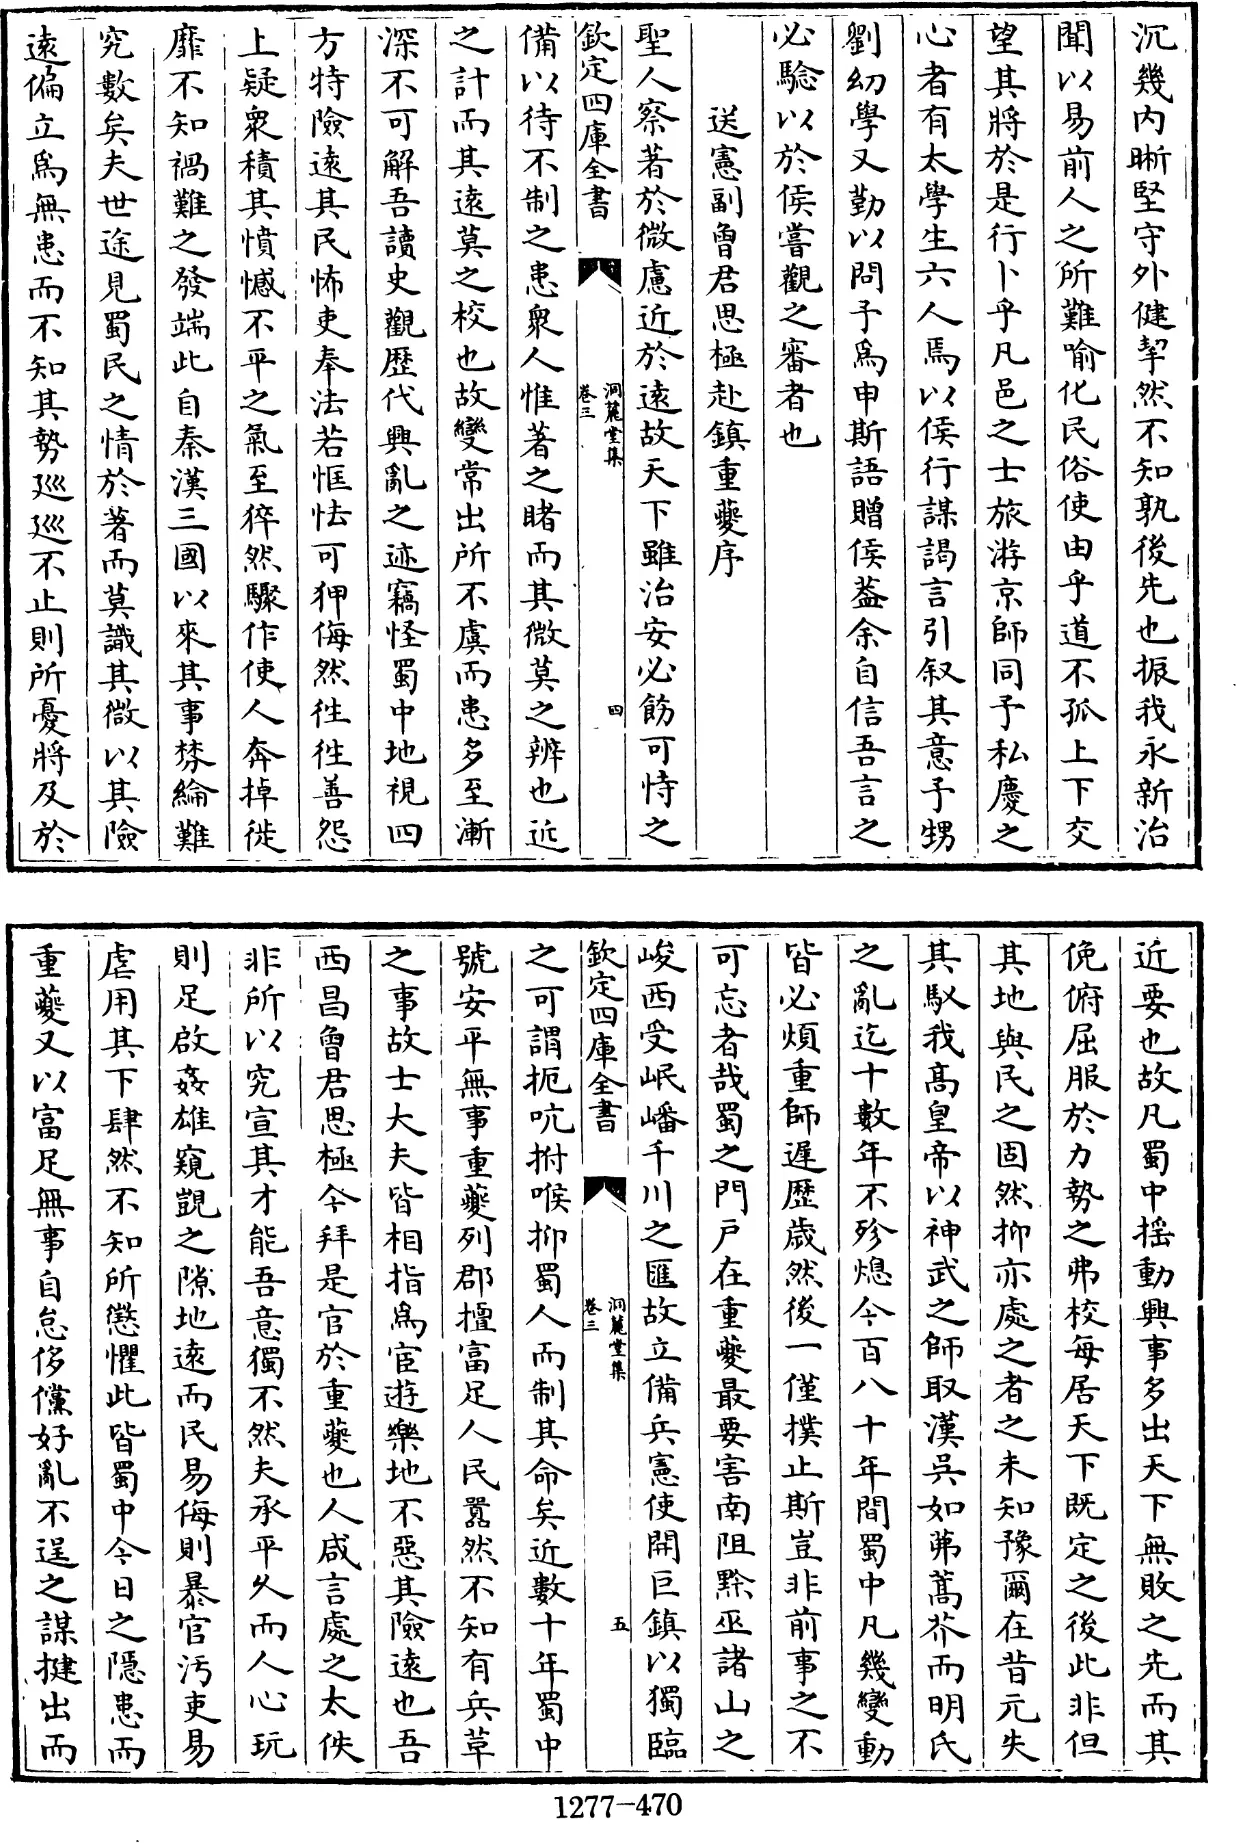 沉幾內晰堅守外健挈然不知孰後先也振我永新治
聞以易前人之所難喻化民俗使由乎道不孤上下交
望其將於是行卜乎凡邑之士旅游京師同予私慶之
心者有太學生六人焉以侯行謀謁言引叙其意予甥
劉幼學又勤以問予爲申斯語贈侯蓋余自信吾言之
必驗以於侯嘗觀之審者也
送憲副曾君思極赴鎮重夔序
聖人察著於微慮近於遠故天下雖治安必飭可恃之
欽定四庫全書
洞麓堂集
卷三
四
備以待不制之患衆人惟著之睹而其微莫之辨也近
之計而其遠莫之校也故變常出所不虞而患多至漸
深不可解吾讀史觀歷代興亂之迹竊怪蜀中地視四
方特險遠其民怖吏奉法若恇怯可狎侮然徃徃善怨
上疑衆積其憤憾不平之氣至猝然驟作使人奔掉徙
靡不知禍難之發端此自秦漢三國以來其事棼綸難
究數矣夫世途見蜀民之情於著而莫識其微以其險
遠偏立爲無患而不知其勢巡巡不止則所憂將及於
近要也故凡蜀中揺動興事多出天下無敗之先而其
俛俯屈服於力勢之弗校每居天下既定之後此非但
其地與民之固然抑亦處之者之未知豫爾在昔元失
其馭我高皇帝以神武之師取漢吳如茀蒿芥而明氏
之亂迄十數年不殄熄今百八十年間蜀中凡幾變動
皆必煩重師遲歷歲然後一僅撲止斯豈非前事之不
可忘者哉蜀之門戸在重夔最要害南阻黔巫諸山之
峻西受岷嶓千川之匯故立備兵憲使開巨鎮以獨臨
欽定四庫全書
洞麓堂集
卷三
五
之可謂扼吭拊喉抑蜀人而制其命矣近數十年蜀中
號安平無事重夔列郡擅富足人民嚚然不知有兵草
之事故士大夫皆相指爲宦遊樂地不惡其險遠也吾
西昌曾君思極今拜是官於重夔也人咸言處之太佚
非所以究宣其才能吾意獨不然夫承平久而人心玩
則足啟姦雄窺覬之隙地遠而民易侮則暴官汚吏易
虐用其下肆然不知所懲懼此皆蜀中今日之隱患而
重夔又以富足無事自怠侈儻好亂不逞之謀揵出而
1277-470